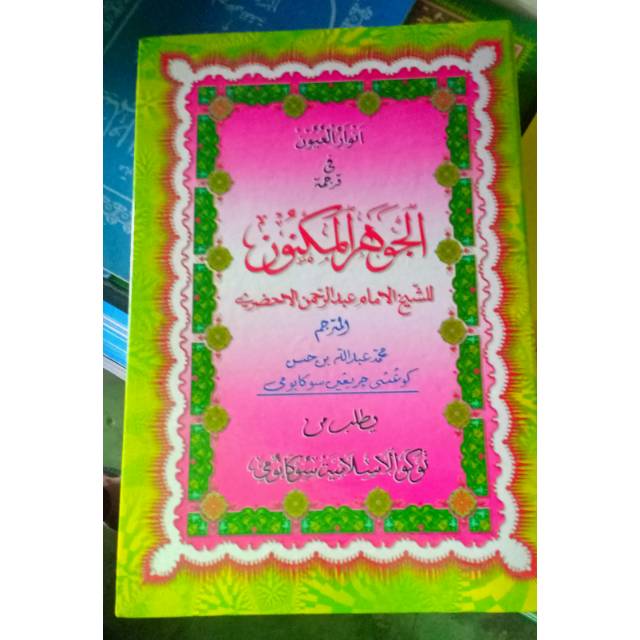 انوار العيون
في
ترجمة
الجوهر المكنون
للشيخ الامام عبد الرحمن الاخضري
المترجم
محمد عبدالله بن حسن
چريڠين سوكابومي
يطلب من
توكو الاسلامية سوكابومي